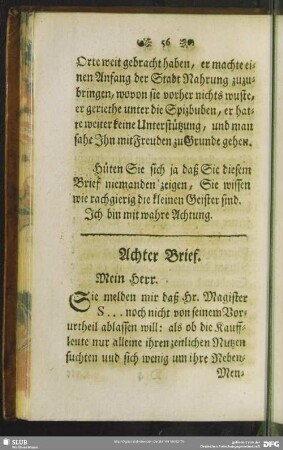 56
Orte weit gebracht haben, er machte ei-
nen Anfang der Stadt Nahrung zuzu-
bringen, wovon sie vorher nichts wuste,
er geriethe unter die Spizbuben, er hat-
te weiter keine Unterstützung, und man
sahe Ihn mit Freuden zu Grunde gehen.
Hüten Sie sich ja daß Sie diesem
Brief niemanden zeigen, Sie wissen
wie rachgierig die kleinen Geister sind.
Ich bin mit wahre Achtung.
Achter Brief.
Mein Herr.
Sie melden mir daß Hr. Magister
S... noch nicht von seinem Vor-
urtheil ablassen will: als ob die Kauff-
leute nur alleine ihren zeitlichen Nutzen
suchten und sich wenig um ihre Neben-
Men-
SLUB
DFG